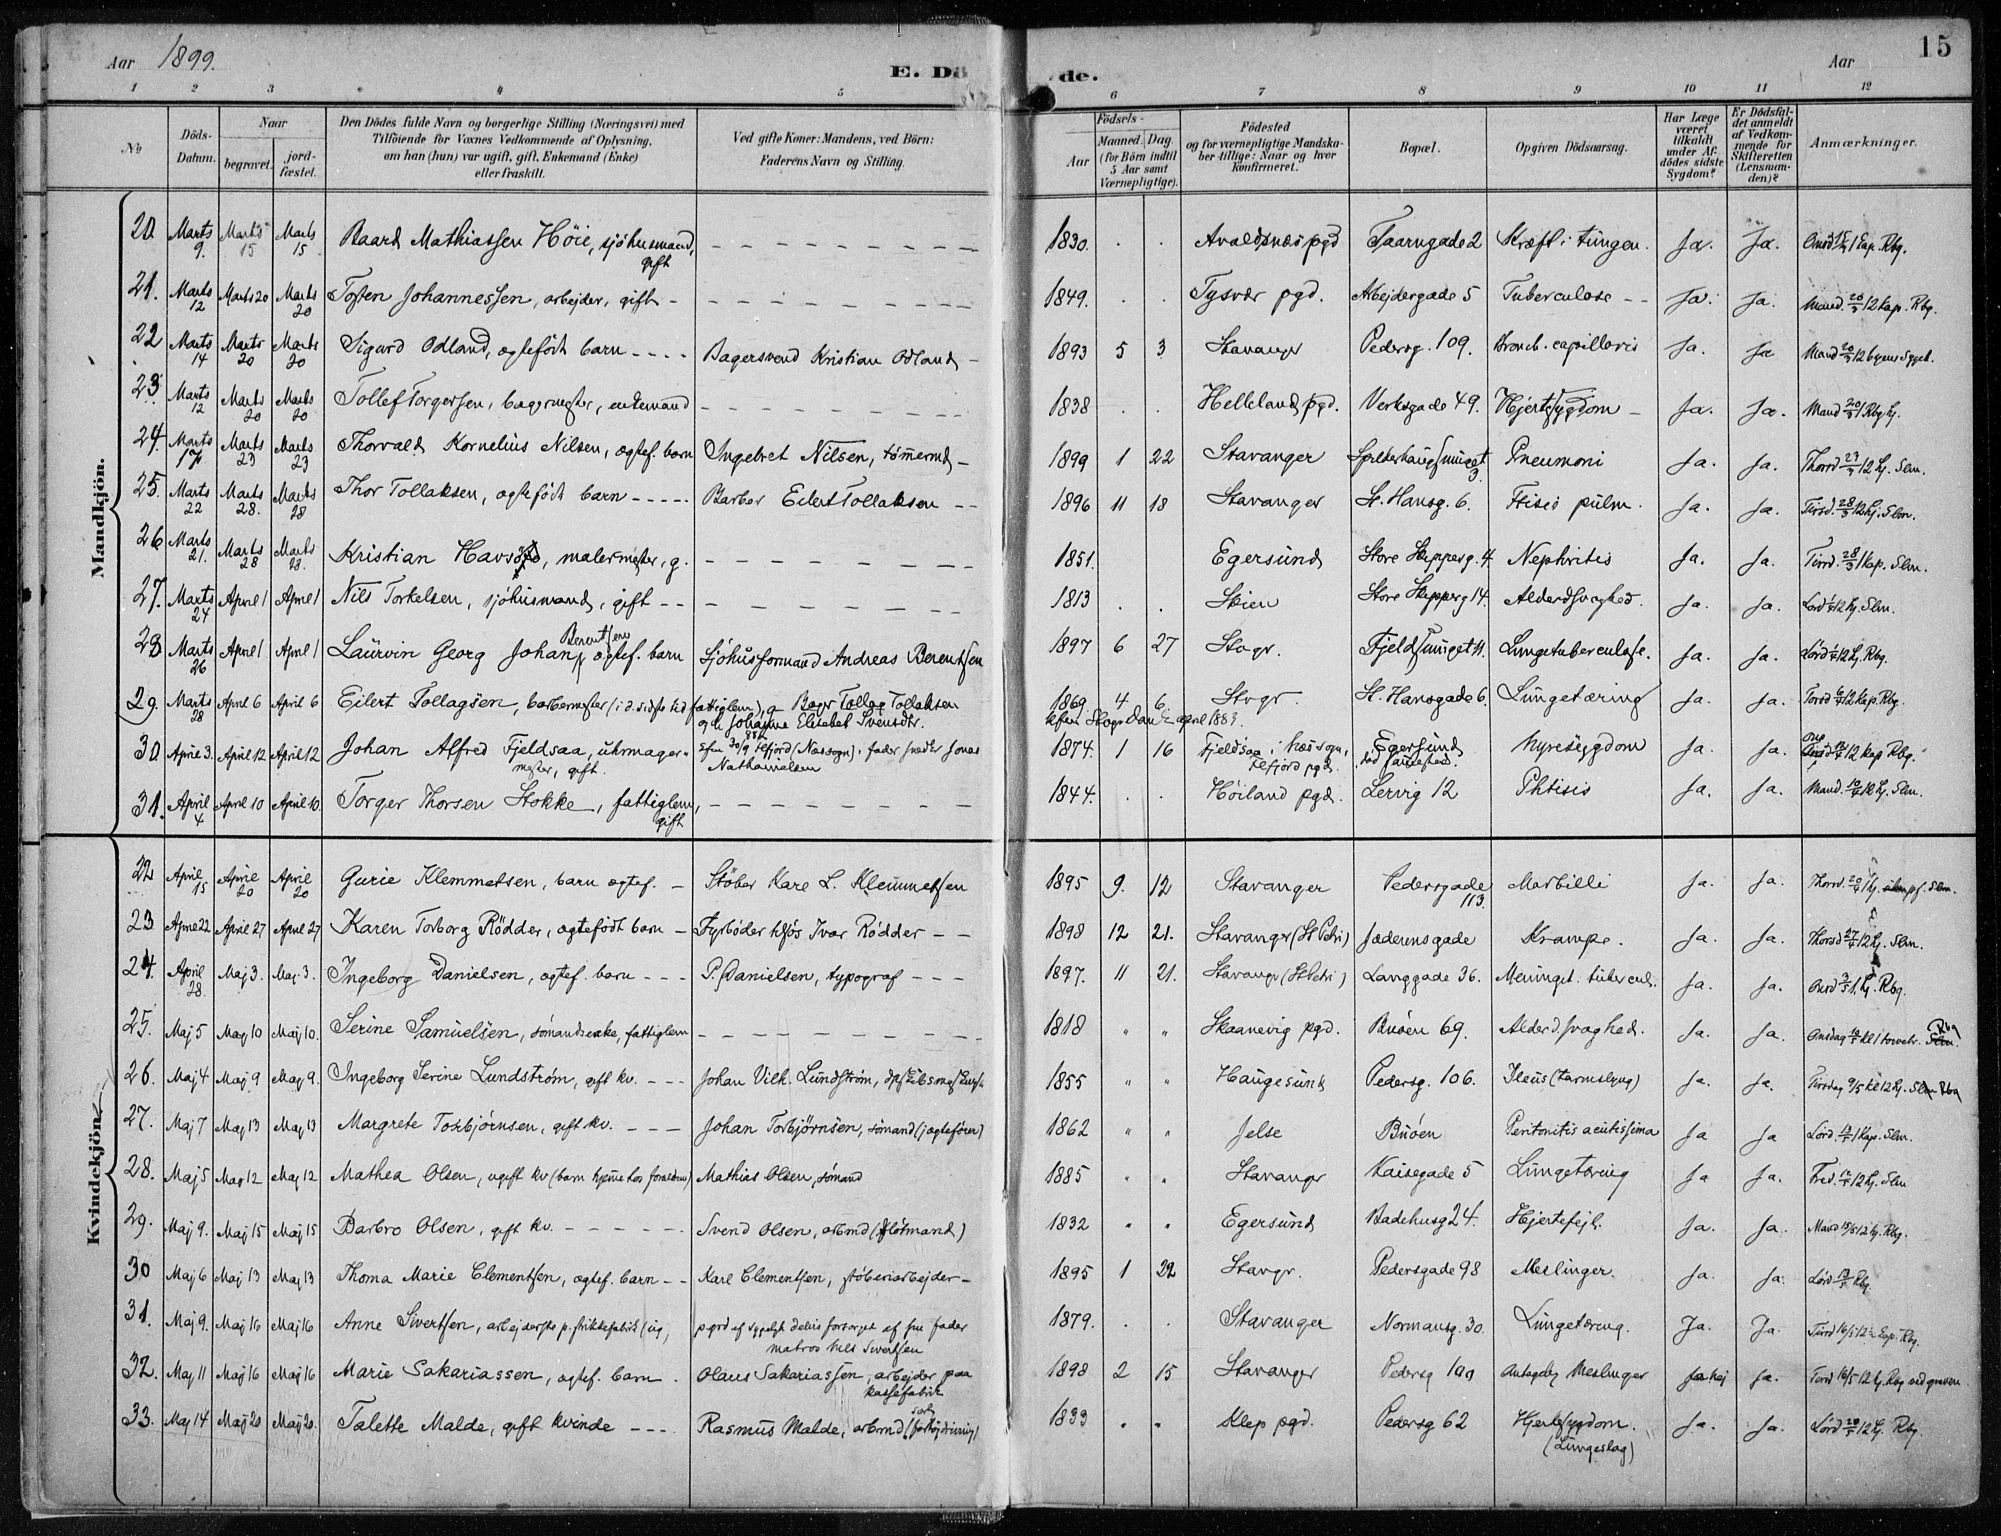 Aar 1899.
E. Dö de.
Aar
15
1 2 3 4 5 6 7 8 9 10 11 12
No
Döds-Datum.
Naar
begravet.
jord-fæstet.
Den Dödes fulde Navn og borgerlige Stilling (Næringsvei) med
Tilföiende for Voxnes Vedkommende af Oplysning,
om han (hun) var ugift, gift, Enkemand (Enke)
eller fraskilt.
Ved gifte Koner: Mandens, ved Börn:
Faderens Navn og Stilling.
Födsels-
Aar
Maaned. Dag.
(for Börn indtil
5 Aar samt
Værnepligtige).
Födested
og for værnepligtige Mandska-
ber tillige: Naar og hvor
konfirmeret.
Bopæl.
Opgiven Dödsaarsag.
Har Læge
været
tilkaldt
under Af-
dödes sidste
Sygdom?
Er Dödsfal-
det anmeldt
af Vedkom-
mende for
Skifteretten
(Lensman-
den)?
Anmærkninger.
Mandkjön.
20. Marts 9. Marts 15 Marts 15 Baard Mathiassen Höie, sjöhusmand, gift 1830. Avaldsnæs pgd Taarngade 2 Kræft i tungen. Ja. Ja. Onsd 15/3 1 Kap. Rbg.
21. Marts 12 Marts 20 Marts 20 Tosten Johannessen, arbejder, gift 1849. Tysvær pgd. Arbejdergade 5 Tuberculose Ja. Ja. Mand. 20/3 12 Kap. Rbg.
22 Marts 14 Marts 20 Marts 20 Sigurd Odland, ægtefödt barn Bagersvend Kristian Odland 1893 5 3 Stavanger Pedersg. 109. Bronch. capillaris Ja. Ja Mand 20/3 12 byens Sygeh.
23. Marts 12 Marts 20 Marts 20 Tollef Torgersen, bagermester, enkemand 1838 Helleland pgd. Verksgade 49. Hjertesygdom Ja. Ja. Mand 20/3 1 Rbg kj.
24. Marts 17 Marts 23 Marts 23 Thorvald Kornelius Nilsen, ægtef. barn Ingebret Nilsen, tömermd 1899 1 22 Stavanger Spilderhaugsmuget 3. Pneumoni Ja. Ja. Thorsd 23/3 12 kj. Slm.
25. Marts 22 Marts 28. Marts 28 Thor Tollaksen, ægtefödt barn Barber Eilert Tollaksen 1896 11 18 Stavanger St. Hansg. 6. Ftisis pulm. Ja. Ja. Tirsd. 28/3 12 kj. Slm.
26 Marts 21. Marts 28 Marts 28. Kristian Havsö, malermester, g. 1851. Egersund Store Skipperg. 4. Nephritis Ja. Ja. Tirsd. 28/3 1 Kap. Slm.
27. Marts 24 April 1 April 1 Nils Torkelsen, sjöhusmand, gift 1813 Skien Store Skipperg 14. Alderdsvaghed. Ja. Ja. Lörd 1/4 12 kj. Slm.
28 Marts 26 April 1 April 1 Laurvin Georg Johan Berentsen ægtef. barn Sjöhusformand Andreas Berentsen 1897 6 27 Stvgr. Fjeldsmuget 11. Lungetuberculose. Ja. Ja. Lörd 1/4 12 kj. Rbg.
29. Marts 28 April 6 April 6 Eilert Tollagsen, barbermester (i d. sidste tid fattiglem), g Bagr Tollag Tollaksen og h. Johanne Elisabet Svensdtr. 1869. 4 6. Stvgr. St. Hansgade 6. Lungetæring Ja. Ja. Torsd 6/4 12 Kap. Rbg.
kfm Stvgr Dom april 1883.
30 April 3. April 12 April 12 Johan Alfred Fjeldsaa, uhrmager- mester, gift. kfm 30/9 88 Fefjord (Næssogn). fader smed Jonas Nathanielsen 1874. 1 16 Fjeldsaa i Næssogn, Fefjord pgd. Egersund Nyresygdom Ja. Ja. Onsd 12/4 12 kap Rbg.
31. April 4 April 10 April 10. Torger Thorsen Stokke, fattiglem, gift 1844. Höiland pgd. Lervig 12 Phtisis Ja. Ja. Mand. 10/4 12 kj. Slm.
Kvindekjön.
22 April 15 April 20 April 20 Gurie Klemmetsen, barn ægtef. Stöber Karl L. Klemmetsen 1895 9. 12 Stavanger Pedersgade 113. Morbilli Ja. Ja. Thorsd. 20/4 1 kj. Slm.
23 April 22 April 27 April 27 Karen Torborg Rödder, ægtefödt barn Fyrböder hfös Ivar Rödder 1898 12 21. Stavanger (St Petri) Jæderensgade Krampe. Ja. Ja. Thorsd 27/4 12 kj. Slm.
24. April 28. Maj 3. Maj 3. Ingeborg Danielsen, ægtef. barn P. Danielsen, typograf 1897. 11 21. Stavangr (St Petri) Langgade 36. Meninget. tubercul. Ja. Ja. Onsd 3/5 1. kj. Rbg.
25. Maj 5 Maj 10 Maj 10. Serine Samuelsen, sömandsenke, fattiglem 1818 " " Skaanevig pgd. Buöen 69. Alderdsvaghed. Ja. Ja. Onsdag 10/5 kl 1 Rbg Slm.
26. Maj 4 Maj 9 Maj 9. Ingeborg Serine Lundström, gift kv. Johan Vilh. Lundström, 1855 " " Haugesund Pedersg. 106. Ileus (tarmslyng) Ja. Ja. Tirsdag 9/5 kl 12 kj. Slm Rbg
27. Maj 7 Maj 13 Maj 13 Margrete Torbjörnsen, gift kv. Johan Torbjörnsen, sömand (jægtefører) 1862 " " Jelse Buöen Peritonitis acutissima Ja Ja Lörd. 13/5 1 Kap. Slm.
28. Maj 5 Maj 12 Maj 12 Mathea Olsen, ugift kv (barn hjemme hos foreldrene) Mathias Olsen, sömand 1885 " " Stavangr Kaisegade 5 Lungetæring Ja Ja. Fred. 12/5 12 kj. Slm
29. Maj 9. Maj 15 Maj 15 Barbro Olsen, gift kv. Svend Olsen, arbmd (flötmand) 1832 " " Egersund Badehusg 24. Hjertefejl. Ja. Ja. Mand 15/5 12 kj. Rbg.
30 Maj 6 Maj 13 Maj 13 Thoma Marie Clementsen, ægtef. barn Karl Clementsen, stöberiarbejder 1895 1 22 Stavgr. Pedersgade 98 Meslinger. Ja. Ja. Lörd 13/5 Rbg.
31. Maj 9. Maj 16 Maj 16 Anne Sivertsen, arbejderske p. strikkefabrik (ug, pgrd af sygelghd delvis forsörget af sin fader matros Nels Sivertsen 1879. Stavanger Normansg. 30. Lungetæring. Ja. Ja. Tirsd 16/5 12 Kap. Rbg.
32. Maj 11 Maj 16 Maj 16 Marie Sakariassen, ægtef. barn. Olaus Sakariassen, arbejder paa kassefabrik 1898 2 15 Stavanger Pedersg 100 Antagelig Meslinger Ja nej Ja. Tirsd 16/5 12 kj. Rbg ved graven.
33. Maj 14 Maj 20 Maj 20. Talette Malde, gift kvinde Rasmus Malde, arbmd 1833 " " Klep pgd. Pedersg 62 Hjertesygdom. (Lungeslag) Ja. Ja. Lörd 20/5 12 kj. Rbg.